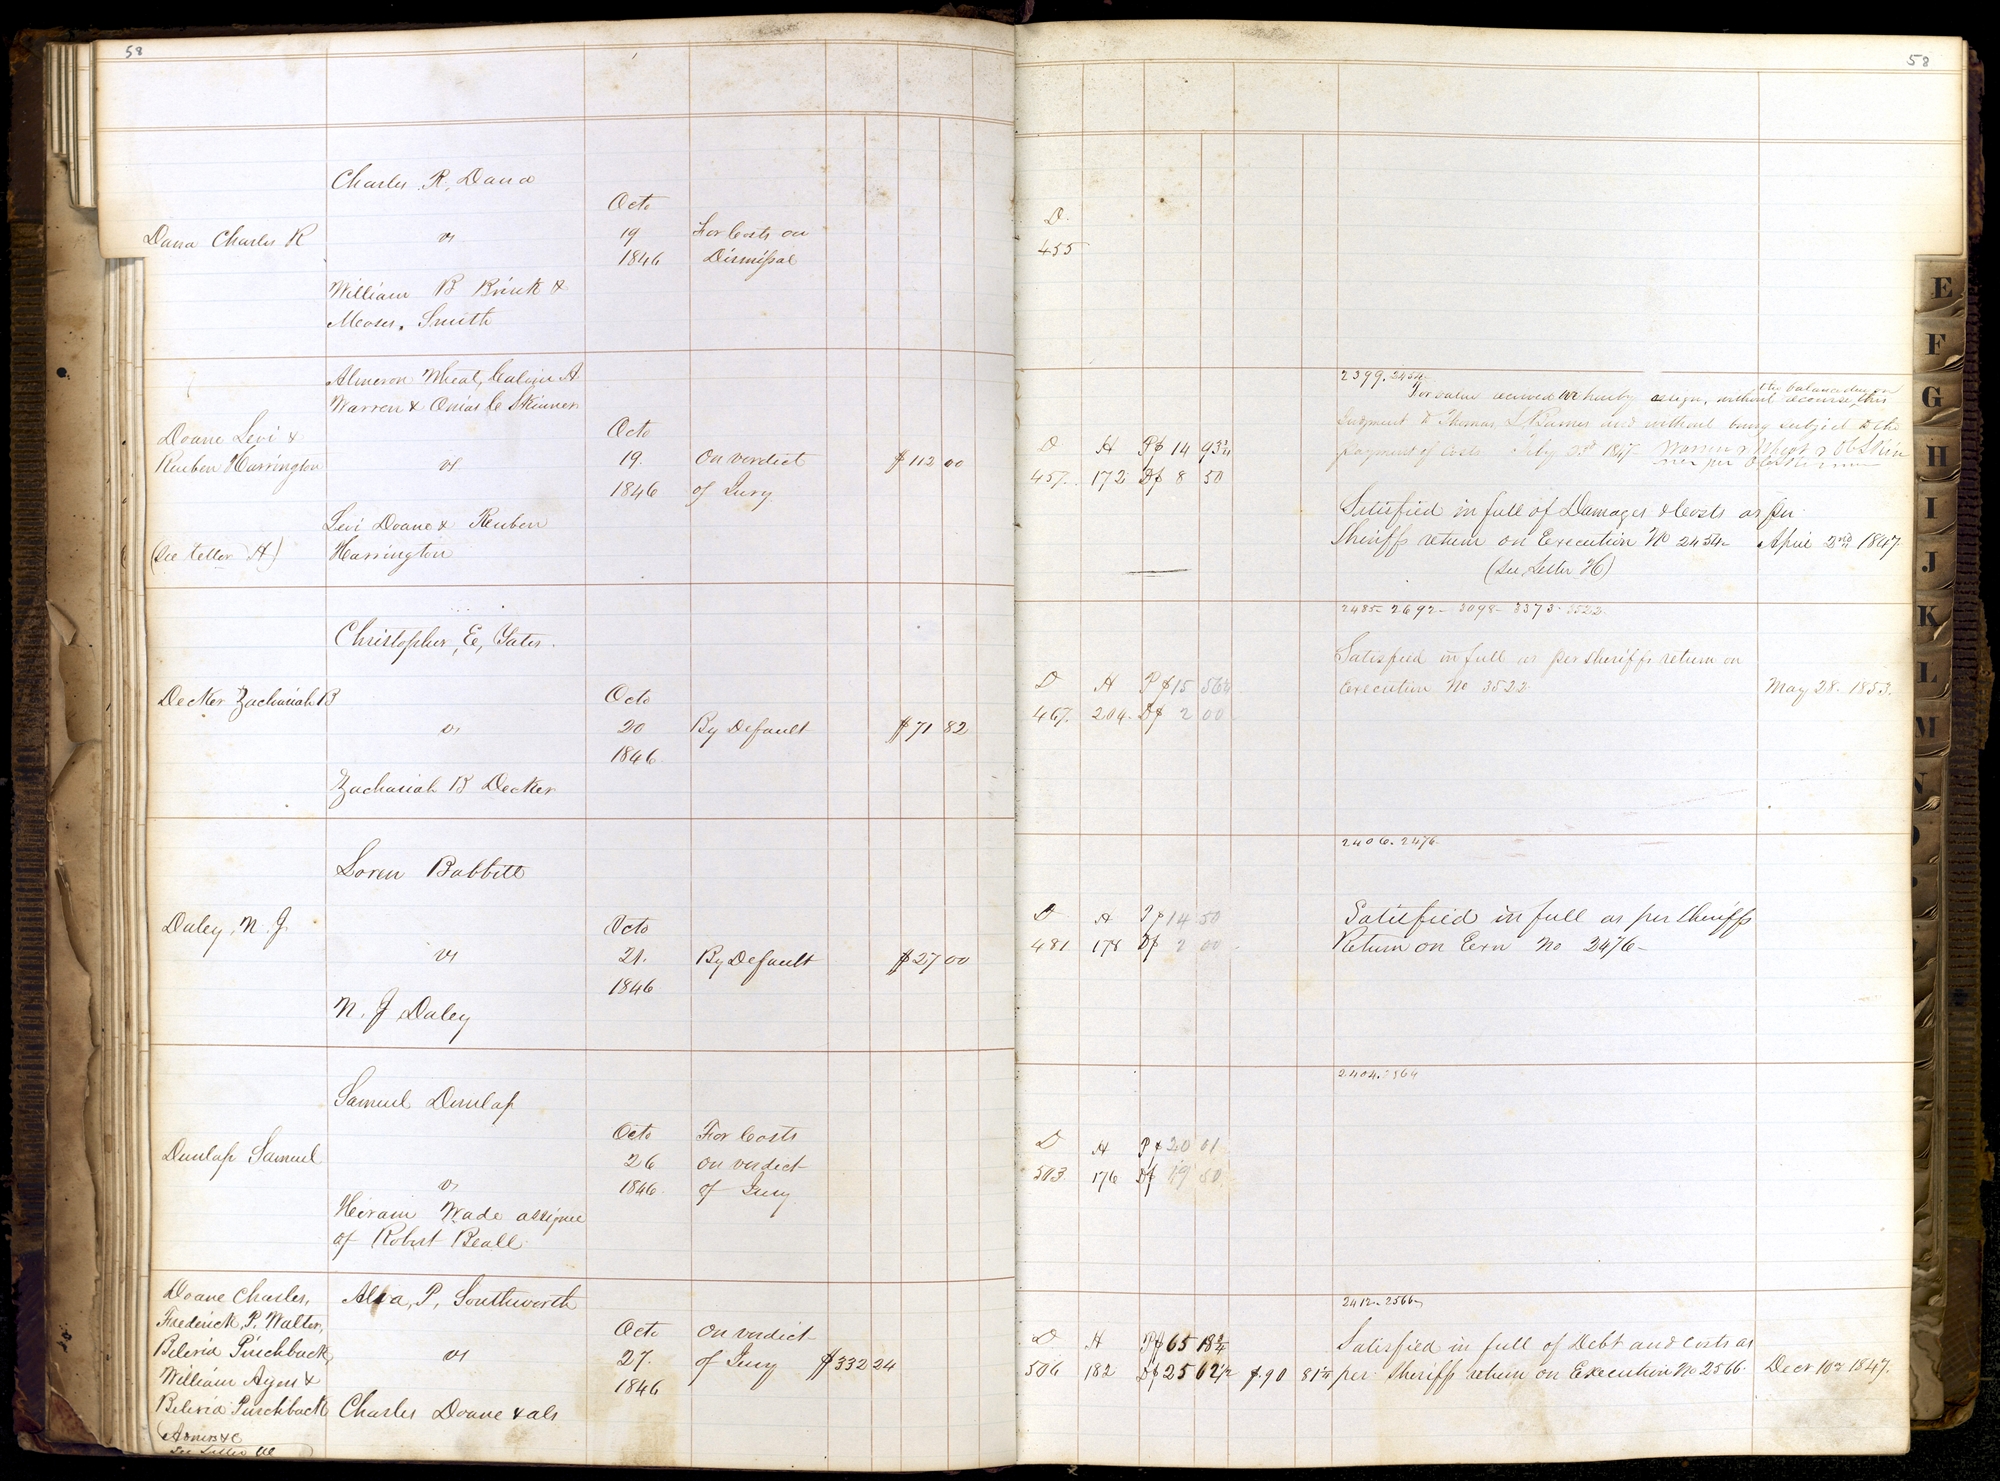 58
58
Charles R, Dana
Dana Charles R
vs
William B Brink &
Moses, Smith
Octo
19
1846
For Costs on
Dismissal
D.
455
Almeron Wheat, Calvin A
Warren & Onias C Skinner
Doane Levi &
Reuben Harrington
(see letter H)
vs
Levi Doane & Reuben
Harrington
Octo
19.
1846
On verdict
of Jury
$112 00
D H P$ 14 93 3/4
457. 172 D$ 8 50
2399. 2454
the balance due on
For value received we hereby assign, without recourse, this
Judgment to Thomas and without being subject to the
payment of costs Feby 2nd 1847 Warren & Wheat & O C Skin
ner per O C Skinner
Satisfied in full of Damages & Costs as per
Sheriffs return on Execution No 2454 April 2nd 1847.
(See, Letter H)
Christopher, E, Yates.
Decker Zachariah B
vs
Zachariah B Decker
Octo
20
1846
By Default
$71 82
D H P $15 56 1/4
467. 204. D$ 2 00
2485- 2692- 3098- 3373- 3522
Satisfied in full as per sheriffs return on
Execution No 3522 May 28. 1853.
Loren Babbitt
Daley, N. J
vs
N. J Daley
Octo
21.
1846
By Default
$27 00
D H P$ 14 50
481 178 D$ 2 00
2406. 2476
Satisfied in full as per Sheriffs
Return on Exn No 2476-
Samuel Dunlap
Dunlap Samuel
vs
Heiram Wade assignee
of Robert Beall
Octo
26
1846
For Costs
on verdict
of Jury
D H P$ 20 01
503 176 D$ 19 50
2404.
Doane Charles,
Frederick, P. Walter,
Beleria Pinchback,
William Ayers &
Beleria Pinchback
See Letter
Alva, P, Southworth
vs
Charles Doane & als
Octo
27.
1846
On verdict
of Jury
$332 24
D H P$ 65 18 3/4
506 182 D$ 25 62 1/2 $.90 81 1/4
2412- 2566
Satisfied in full of Debt and Costs as
per Sheriffs return on Execution No 2566 Decr 10th 1847.
E
F
G
H
I
J
K
L
M
N